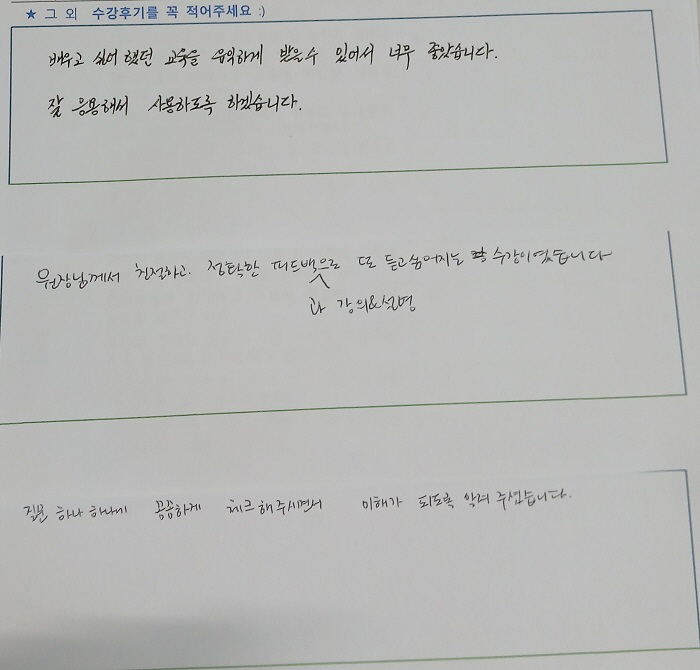 ★ 그 외 수강후기를 꼭 적어주세요 :)
배우고 싶어 했던 교육을 유익하게 받을수 있어서 너무 좋았습니다.
잘 응용해서 사용하도록 하겠습니다.
원장님께서 친절하고. 정확한 피드백으로 또 듣고싶어지는 수강이였습니다
과 강의&설명
질문 하나 하나에 꼼꼼하게 체크해주시면서 이해가 되도록 알려 주셨습니다.